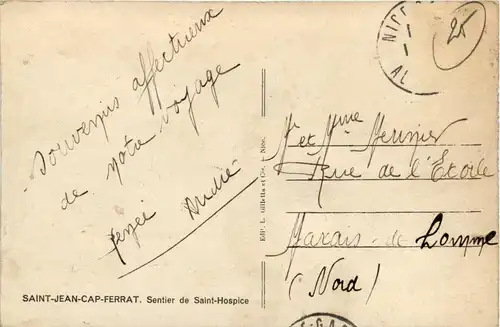 Souvenirs affectueux
de notre voyage
André
SAINT-JEAN-CAP-FERRAT. Sentier de Saint-Hospice
Edit. L. Gilletta et Cie, Nice.
NICE
AL
25
Mr et Mme Meunier
Rue de l'Étoile
Marais-de Lomme
(Nord)
GA